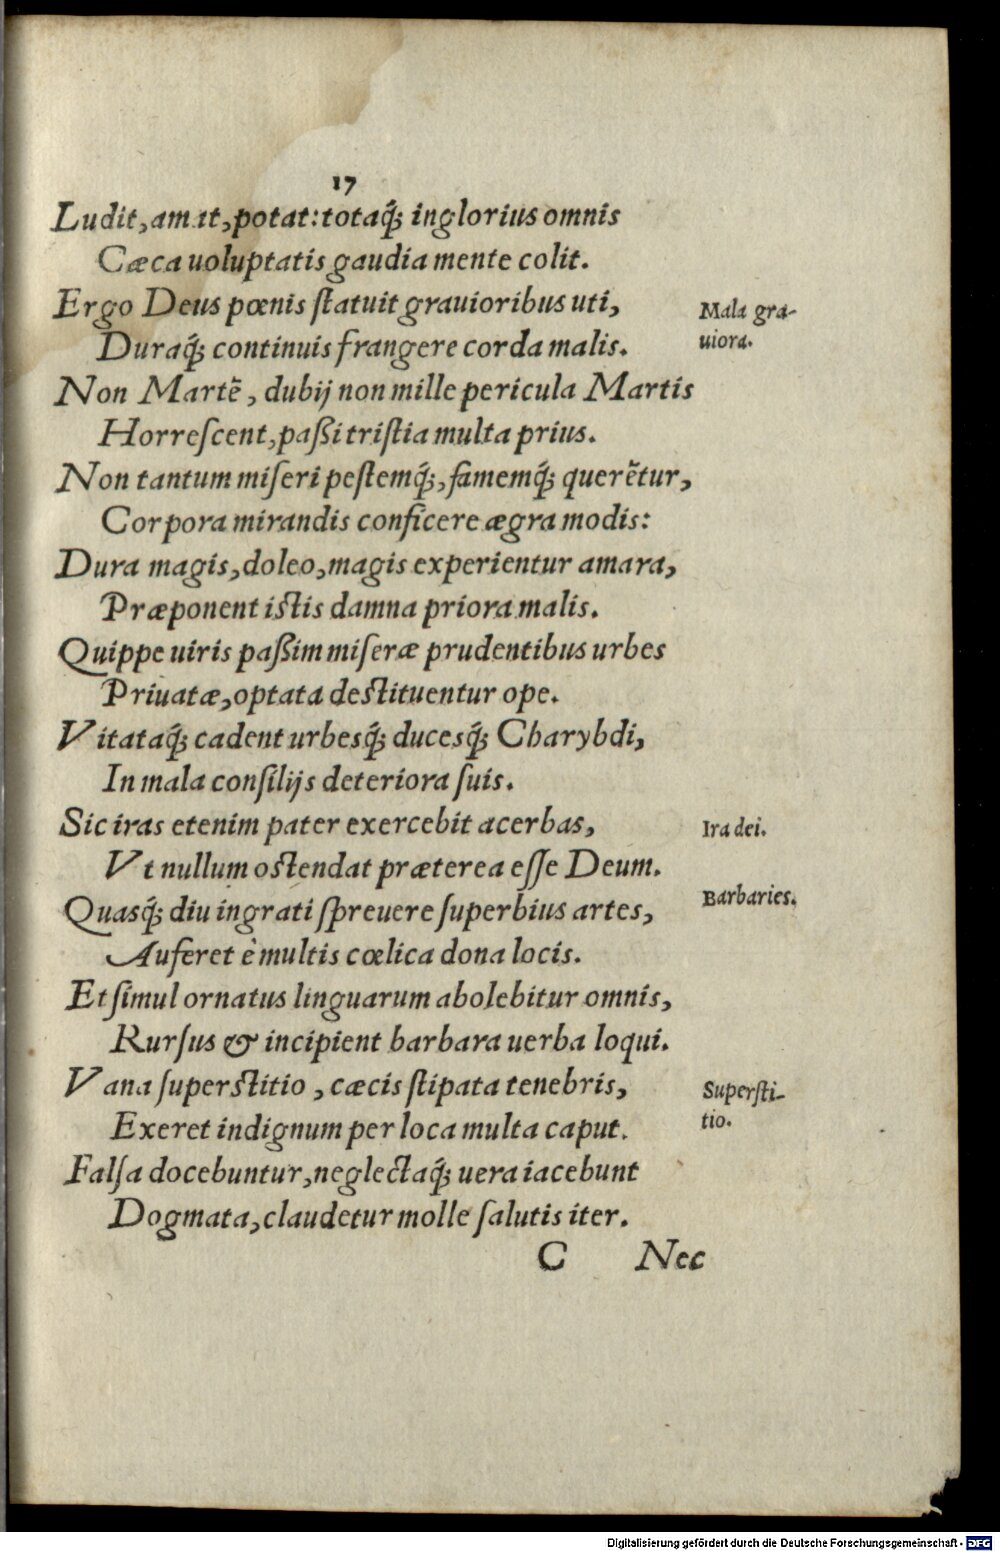 17
Ludit, amat, potat: totaq́; inglorius omnis
Cæca uoluptatis gaudia mente colit.
Ergo Deus pœnis ſtatuit grauioribus uti,
Mala gra-
uiora.
Duraq́; continuis frangere corda malis.
Non Martẽ, dubij non mille pericula Martis
Horreſcent, paßi triſtia multa prius.
Non tantum miſeri peſtemq́;, famemq́; querẽtur,
Corpora mirandis conficere ægra modis:
Dura magis, doleo, magis experientur amara,
Præponent iſtis damna priora malis.
Quippe uiris paßim miſeræ prudentibus urbes
Priuatæ, optata deſtituentur ope.
Vitataq́; cadent urbesq́; ducesq́; Charybdi,
In mala conſilijs deteriora ſuis.
Sic iras etenim pater exercebit acerbas,
Ira dei.
Vt nullum oſtendat præterea eſſe Deum.
Quasq́; diu ingrati ſpreuere ſuperbius artes,
Barbaries.
Auferet è multis cœlica dona locis.
Et ſimul ornatus linguarum abolebitur omnis,
Rurſus & incipient barbara uerba loqui.
Vana ſuperſtitio, cæcis ſtipata tenebris,
Superſti-
tio.
Exeret indignum per loca multa caput.
Falſa docebuntur, neglectaq́; uera iacebunt
Dogmata, claudetur molle ſalutis iter.
C Nec
Digitalisierung gefördert durch die Deutsche Forschungsgemeinschaft - DFG